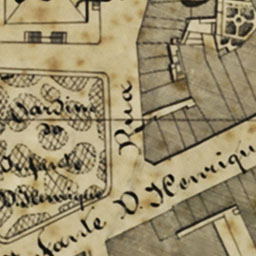 Jardim
do
Infante
D. Henrique
Rua
Infante D. Henriqu